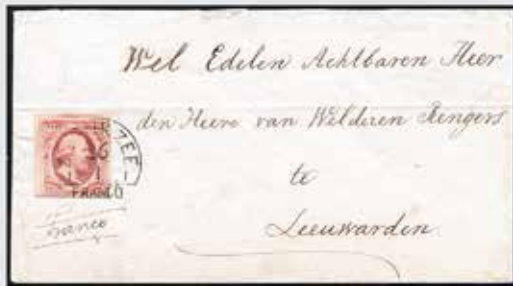 Wel Edelen Achtbaren Heer
den Heere van Welderen Rengers
te
Leeuwarden
ZEE
26
1
FRANCO
franco